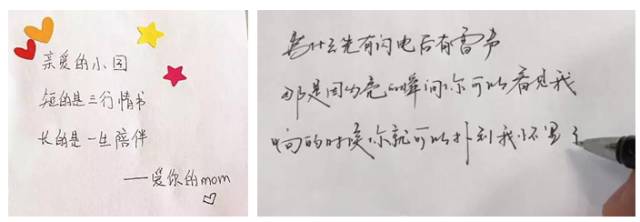 亲爱的小图
短的是三行情书
长的是一生陪伴
——爱你的mom
为什么先有闪电后有雷声
那是因为亮的瞬间你可以看见我
响的时候你就可以扑到我怀里了